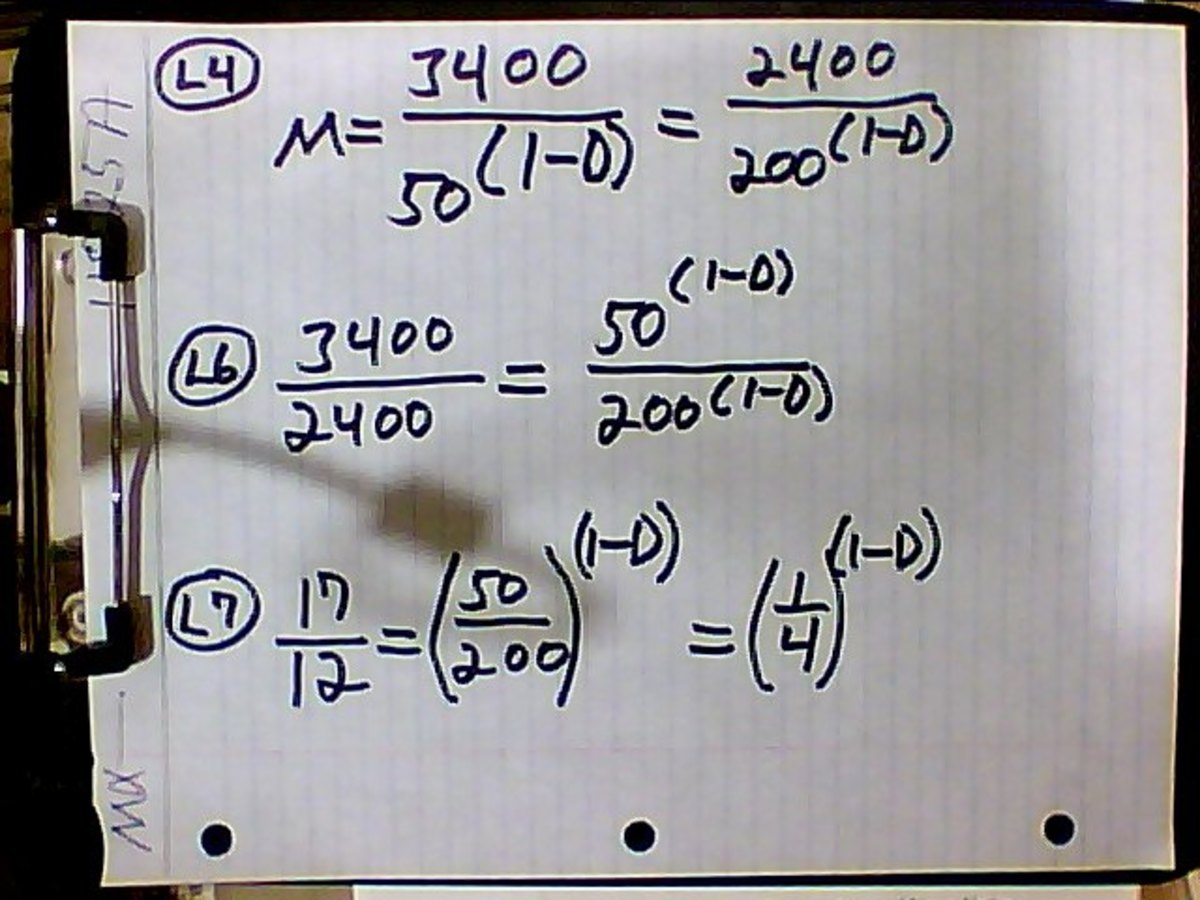 L4 M = 3400 / 50^(1-D) = 2400 / 200^(1-D)
L6 3400 / 2400 = 50^(1-D) / 200^(1-D)
L7 17 / 12 = (50 / 200)^(1-D) = (1 / 4)^(1-D)